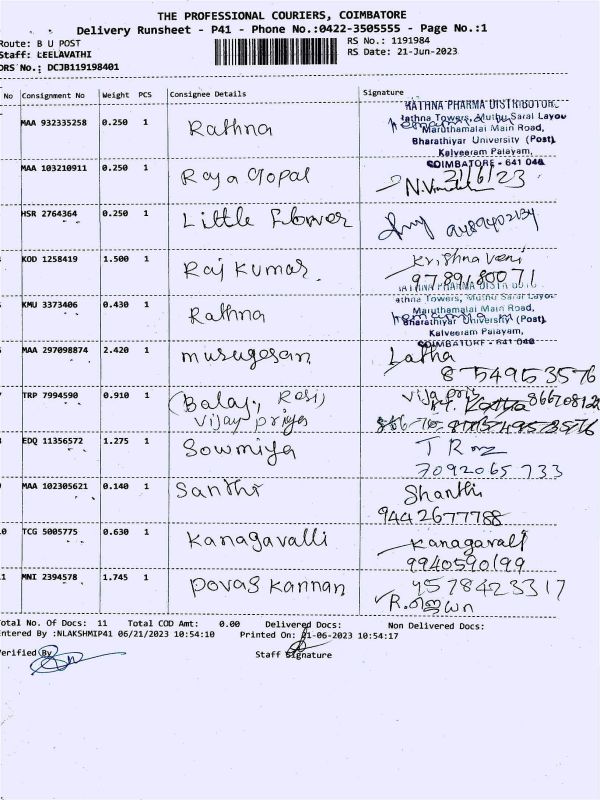 THE PROFESSIONAL COURIERS, COIMBATORE
Delivery Runsheet - P41 - Phone No.:0422-3505555 - Page No.:1
Route: B U POST
Staff: LEELAVATHI
DRS No.: DCJB119198401
RS No.: 1191984
RS Date: 21-Jun-2023
No Consignment No Weight PCS Consignee Details Signature
MAA 932335258 0.250 1 Rathna
RATHNA PHARMA DISTRIBUTOR
Rathna Towers, Muthu Sarai Layou
Maruthamalai Main Road,
Bharathiyar University (Post),
Kalveeram Palayam,
COIMBATORE - 641 046
MAA 103210911 0.250 1 Raja Gopal 21/6/23
HSR 2764364 0.250 1 Little Flower
KOD 1258419 1.500 1 Raj Kumar. Krishnaveni
9789180071
KMU 3373406 0.430 1 Rathna
RATHNA PHARMA DISTRIBUTO
athna Towers, Muthu Sarai Layou
Maruthamalai Main Road,
Bharathiyar University (Post),
Kalveeram Palayam,
COIMBATORE - 641 046
MAA 297098874 2.420 1 murugesan Latha
8754953576
TRP 7994590 0.910 1 (Balaji, Rasi)
Vijay priya
EDQ 11356572 1.275 1 Sowmiya
7092065733
MAA 102305621 0.140 1 Santhi Shanthi
9442677788
10 TCG 5005775 0.630 1 Kanagavalli Kanagavalli
9940590199
11 MNI 2394578 1.745 1 Povas Kannan 9578423317
Total No. Of Docs: 11 Total COD Amt: 0.00 Delivered Docs: Non Delivered Docs:
Entered By :NLAKSHMIP41 06/21/2023 10:54:10 Printed On: 21-06-2023 10:54:17
Verified By
Staff Signature